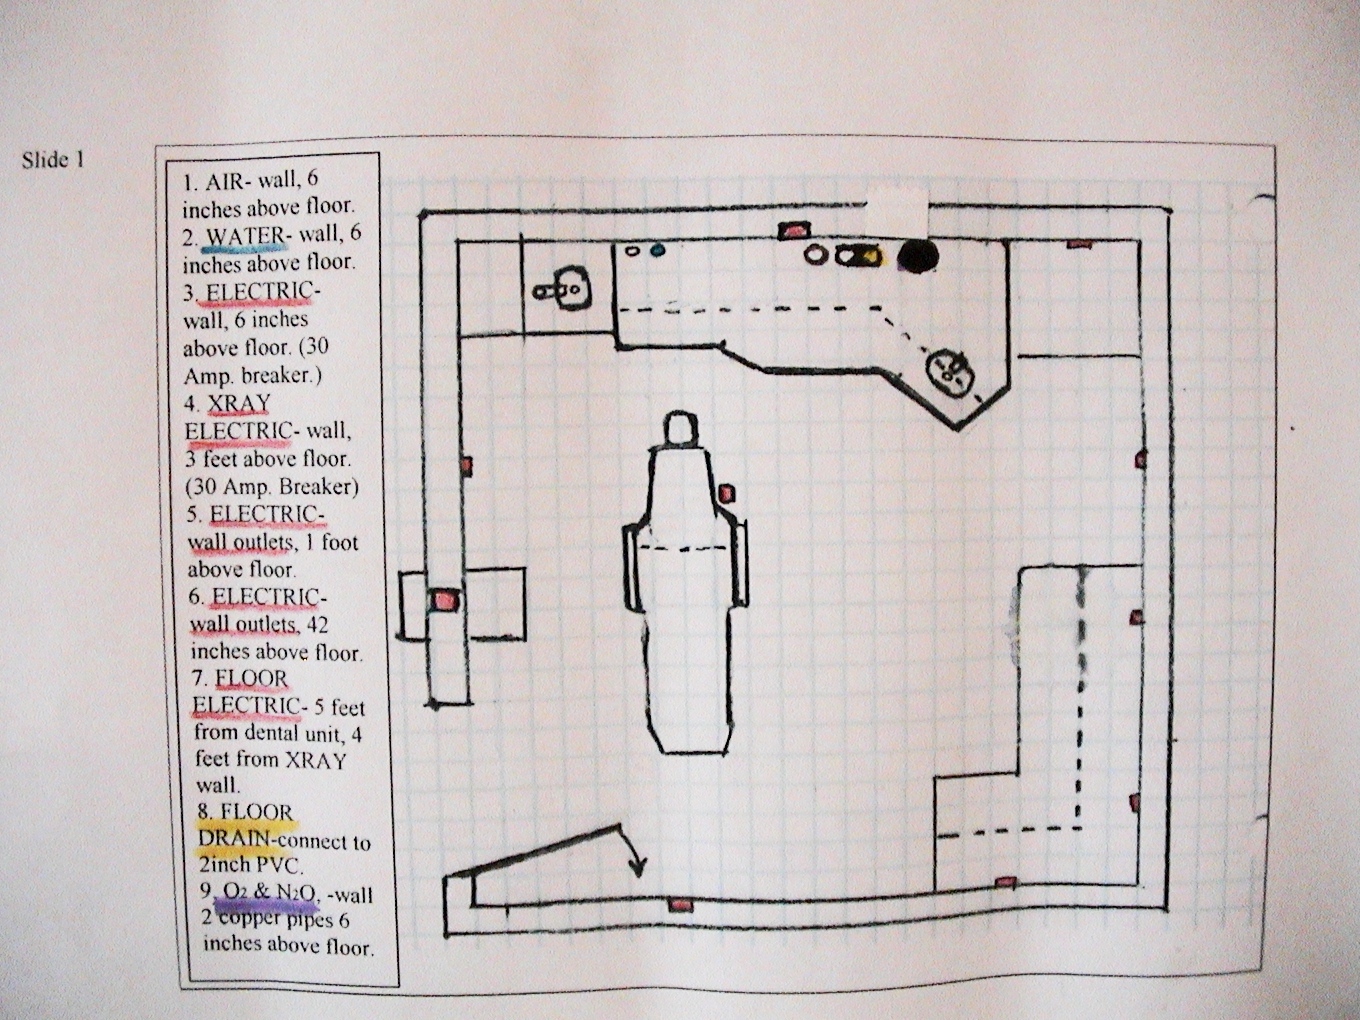 Slide 1
1. AIR- wall, 6
inches above floor.
2. WATER- wall, 6
inches above floor.
3. ELECTRIC-
wall, 6 inches
above floor. (30
Amp. breaker.)
4. XRAY
ELECTRIC- wall,
3 feet above floor.
(30 Amp. Breaker)
5. ELECTRIC-
wall outlets, 1 foot
above floor.
6. ELECTRIC-
wall outlets, 42
inches above floor.
7. FLOOR
ELECTRIC- 5 feet
from dental unit, 4
feet from XRAY
wall.
8. FLOOR
DRAIN-connect to
2inch PVC.
9. O2 & N2O, -wall
2 copper pipes 6
inches above floor.